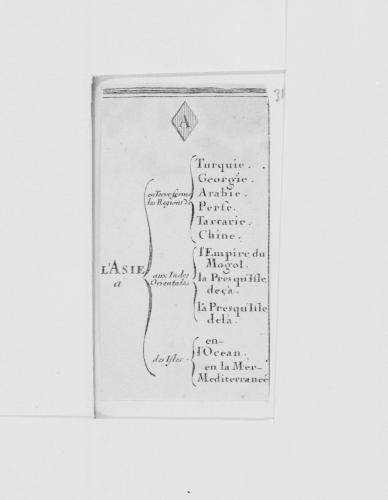 31
A
en Terre ferme
les Regions de
Turquie.
Georgie.
Arabie.
Perse.
Tartarie.
Chine.
L'ASIE
a
aux Indes
Orientales
l'Empire du
Mogol.
la Presqu'Isle
deçà.
la Presqu'Isle
delà.
des Isles
en-
l'Ocean.
en la Mer-
Mediterraneé